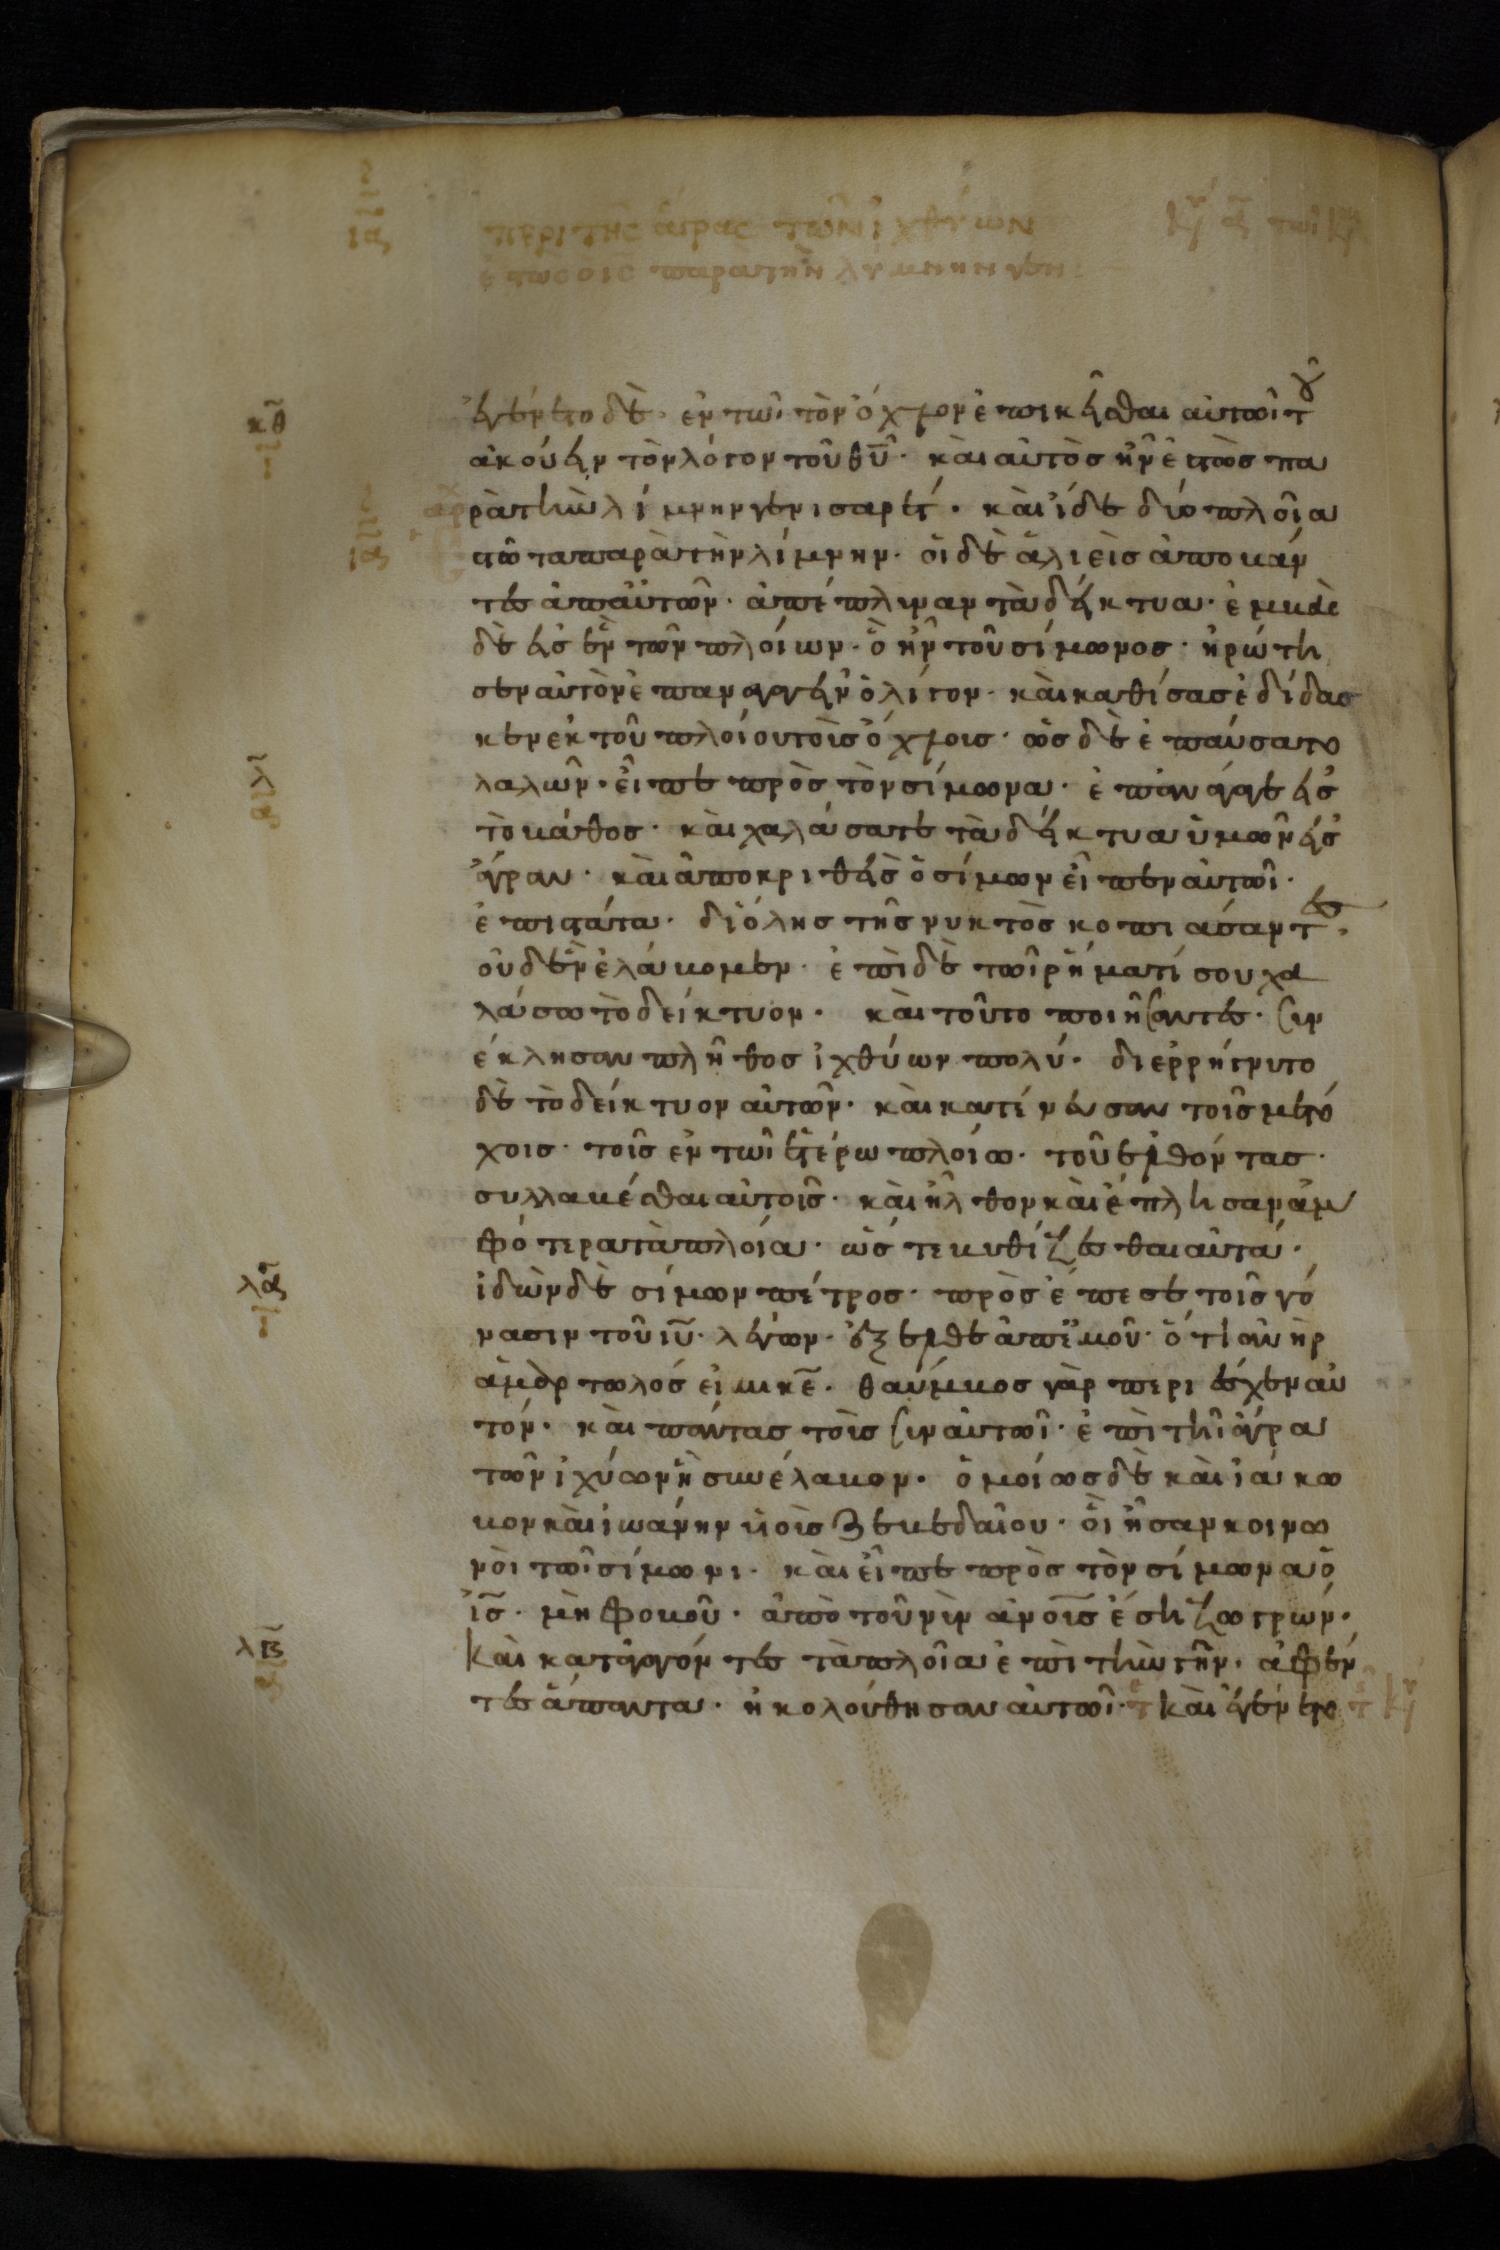 περι της άγρας των ιχθύων
ἐγένετο δὲ· ἐν τῶι τὸν ὄχλον ἐπικεῖσθαι αὐτῶι τοῦ
ἀκούειν τὸν λόγον τοῦ θ̅υ̅· καὶ αὐτὸς ἦν ἑστὼς πα
ρὰ τὴν λίμνην γεννισαρέτ· καὶ ἴδε δύο πλοῖα
ἑστῶτα παρὰ τὴν λίμνην· οἱ δὲ ἁλιεῖς ἀποβάν
τες ἀπ' αὐτῶν· ἀπέπλυναν τὰ δίκτυα· ἐμβὰς
δὲ εἰς ἓν τῶν πλοίων· ὃ ἦν τοῦ σίμωνος· ἠρώτη
σεν αὐτὸν ἐπαναγαγεῖν ὀλίγον· καὶ καθίσας ἐδίδασ
κεν ἐκ τοῦ πλοίου τοῖς ὄχλοις· ὡς δὲ ἐπαύσατο
λαλῶν· εἶπε πρὸς τὸν σίμωνα· ἐπανάγαγε εἰς
τὸ βάθος· καὶ χαλάσατε τὰ δείκτυα ὑμῶν εἰς
ἄγραν· καὶ ἀποκριθεὶς ὁ σίμων εἶπεν αὐτῶι·
ἐπιστάτα· δι' ὅλης τῆς νυκτὸς κοπιάσαντες·
οὐδὲν ἐλάβομεν· ἐπὶ δὲ τῶι ῥήματί σου χα
λάσω τὸ δείκτυον· καὶ τοῦτο ποιήσαντες· συν
έκλησαν πλῆθος ἰχθύων πολύ· διερρήγνυτο
δὲ τὸ δείκτυον αὐτῶν· καὶ κατένευσαν τοῖς μετό
χοις· τοῖς ἐν τῶι ἑτέρω πλοίω· τοῦ ἐλθόντας·
συλλαβέσθαι αὐτοῖς· καὶ ἦλθον καὶ ἔπλησαν ἀμ
φότερα τὰ πλοία· ὥστε βυθίζεσθαι αὐτά·
ἰδὼν δὲ σίμων πέτρος· προσέπεσε τοῖς γό
νασιν τοῦ ι̅υ̅· λέγων· ἔξελθε ἀπ' ἐμοῦ· ὅτι ἀνὴρ
ἁμαρτωλός εἰμι κ̅ε̅· θάμβος γὰρ περιέσχεν αὐ
τόν· καὶ πάντας τοὶς συν αὐτῶι· ἐπὶ τῆι ἄγρα
τῶν ἰχύων ἧ συνέλαβον· ὁμοίως δὲ καὶ ἰάκω
βον καὶ ἰωάννην υἱοὶς ζεβεδαίου· οἳ ἦσαν κοινω
νοὶ τῶι σίμωνι· καὶ εἶπε πρὸς τὸν σίμωνα ὁ
ι̅ς̅· μὴ φοβοῦ· ἀπὸ τοῦ νῦν ἀνο̅ι̅ς̅ ἔση ζωγρών·
καὶ καταγαγόντες τὰ πλοῖα ἐπὶ τὴν γῆν· ἀφέν
τες ἅπαντα· ἠκολούθησαν αὐτῶι· καὶ ἐγένετο
κθ
λα
λβ